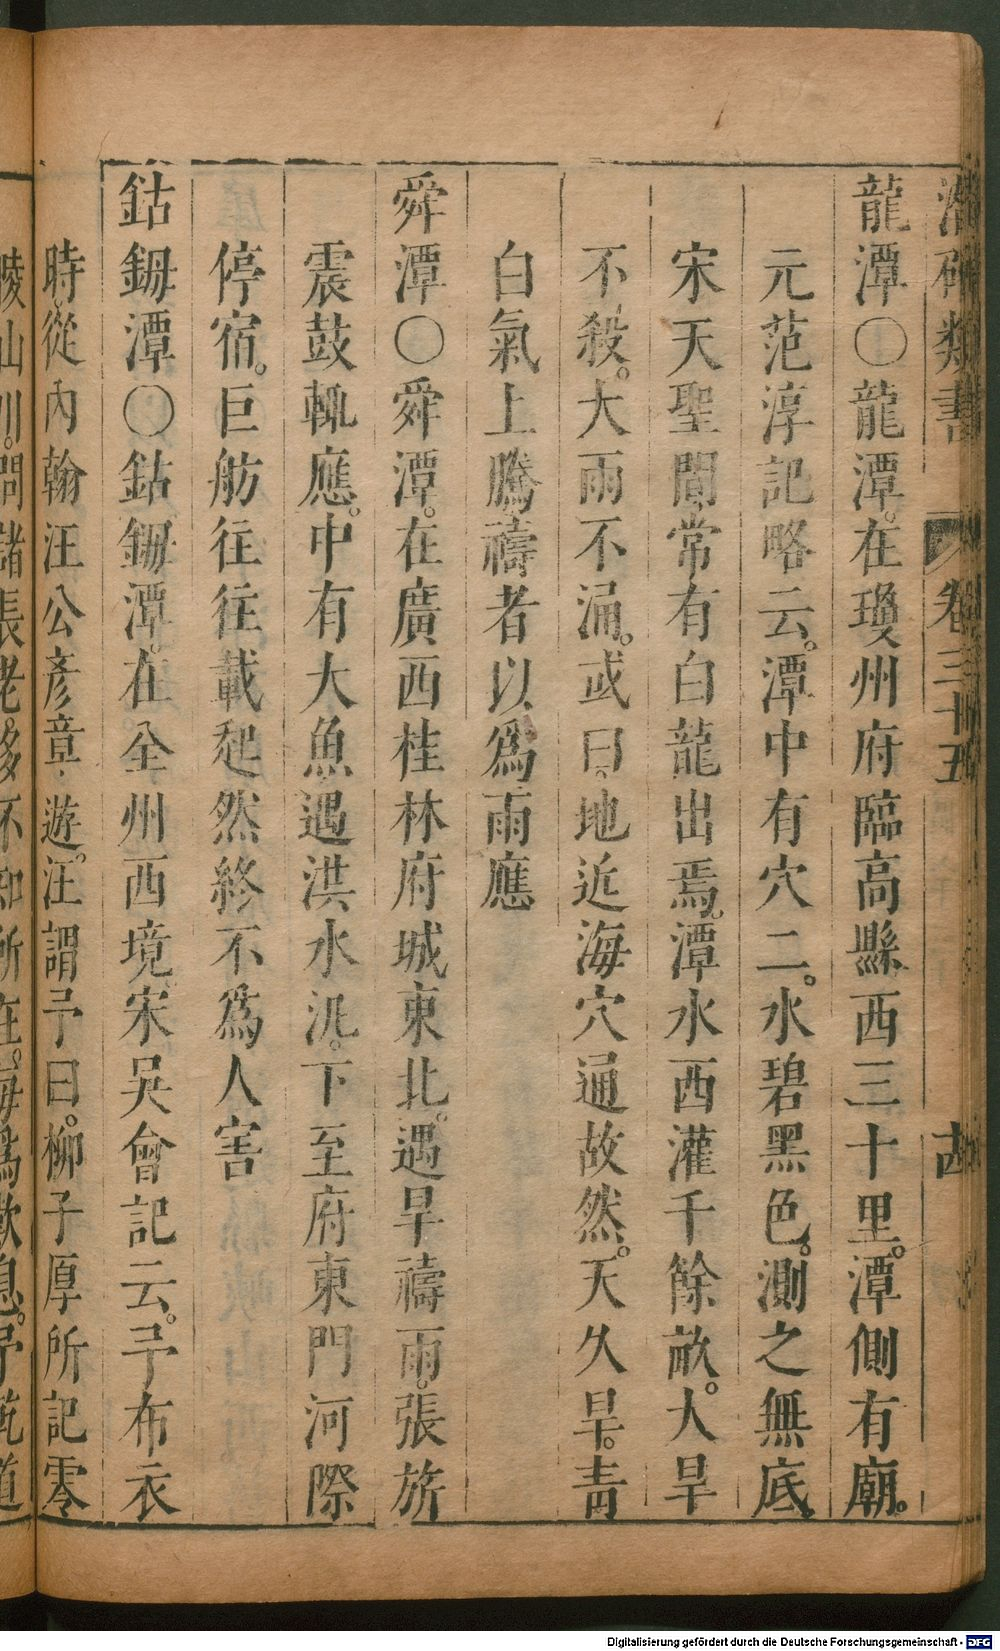 潛確類書 卷三十五
龍潭〇龍潭。在瓊州府臨高縣西三十里。潭側有廟。
元范淳記略云。潭中有穴二。水碧黑色。測之無底。
宋天聖間常有白龍出焉。潭水西灌千餘畝。大旱
不殺。大雨不涌。或曰。地近海穴通故然。天久旱。青
白氣上騰禱者以為雨應
舜潭〇舜潭。在廣西桂林府城東北。遇旱禱雨。張旂
震鼓輒應。中有大魚遇洪水汎。下至府東門河際
停宿。巨舫往往載起然終不為人害
鈷鉧潭〇鈷鉧潭。在全州西境。宋吳會記云。予布衣
時從內翰汪公彥章遊。汪謂予曰。柳子厚所記零
陵山川。問諸長老。多不知所在。每為歎息。予乾道
Digitalisierung gefördert durch die Deutsche Forschungsgemeinschaft - DFG